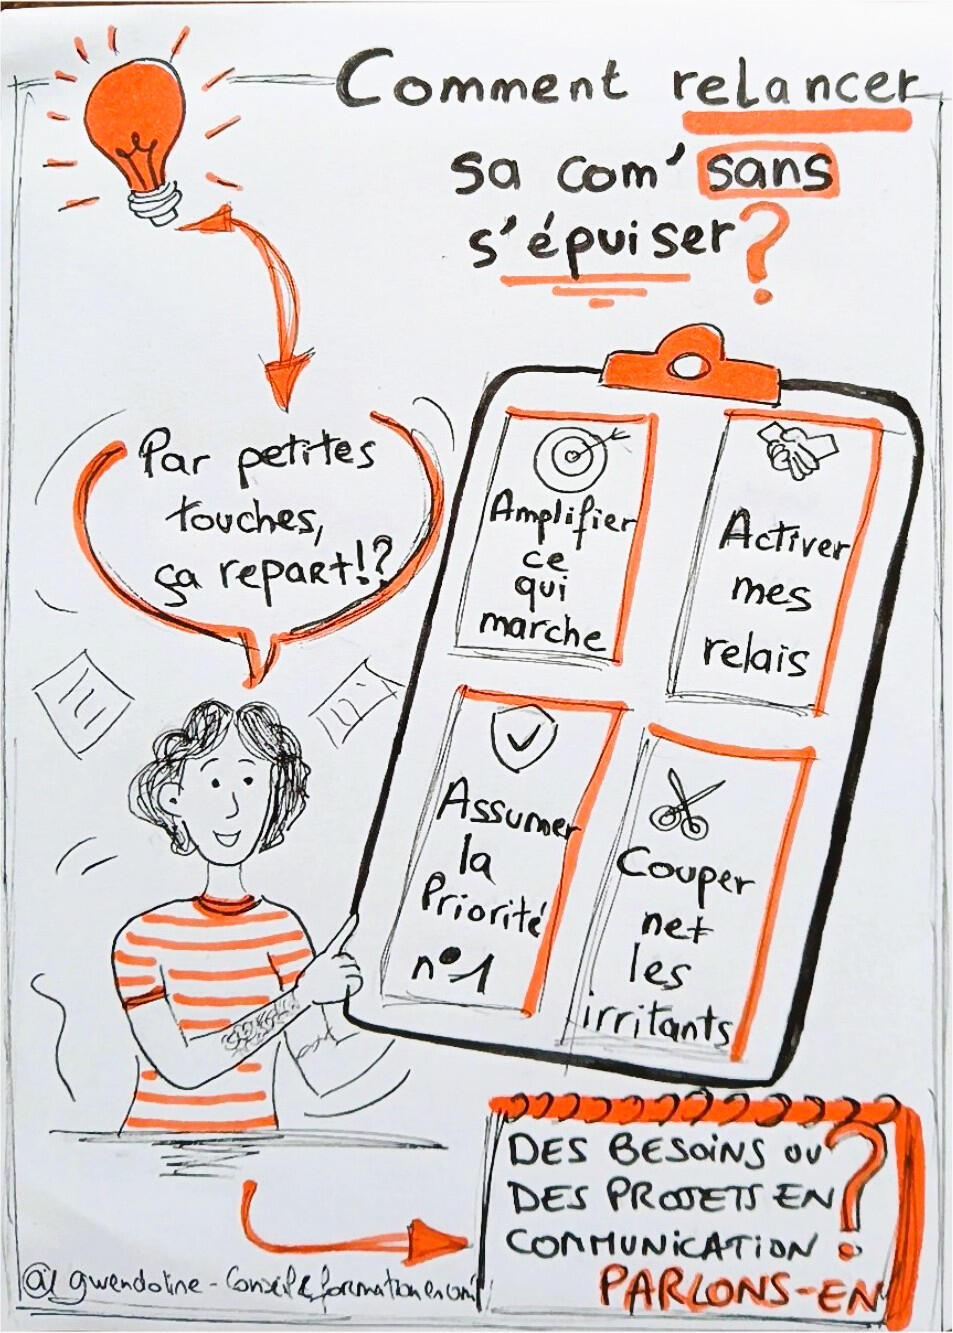 Comment relancer
sa com' sans
s'épuiser?
Par petites
touches,
ça repart!?
Amplifier
ce
qui
marche
Activer
mes
relais
Assumer
la
Priorité
n°1
Couper
net
les
irritants
DES BESOINS OU
DES PROJETS EN
COMMUNICATION ?
PARLONS-EN
gwendoline - Conseil & formation en com'